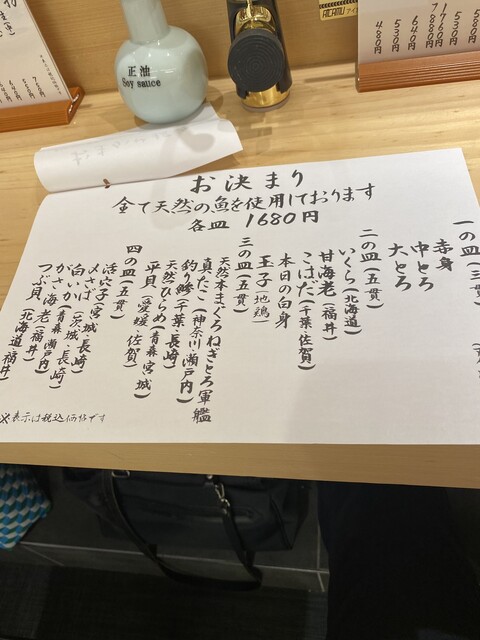 正油
Soy sauce
お決まり
全て天然の魚を使用しております
各皿 1680円
一の皿(三貫)
赤身
中とろ
大とろ
二の皿(五貫)
いくら(北海道)
甘海老(福井)
こはだ(千葉・佐賀)
本日の白身
玉子(地鶏)
三の皿(五貫)
天然本まぐろねぎとろ軍艦
真たこ(神奈川・瀬戸内)
釣り鯵(千葉・長崎)
天然ひらめ(青森・宮城)
平貝(愛媛・佐賀)
四の皿(五貫)
活穴子(宮城・長崎)
〆さば(茨城・長崎)
白いか(青森・瀬戸内)
がさ海老(福井)
つぶ貝(北海道・福井)
※表示は税込価格です
580円
760円
880円
640円
530円
480円